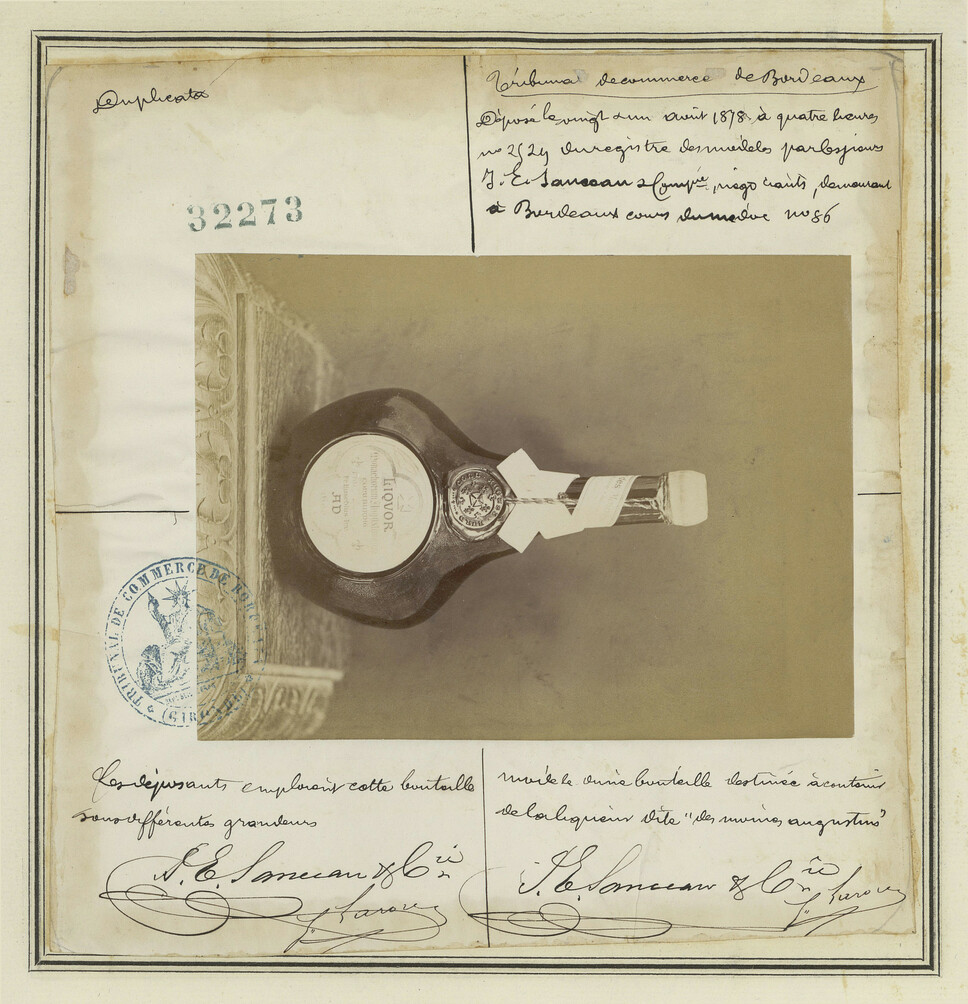 Duplicata
32273
Tribunal de commerce de Bordeaux
Déposé le vingt un avril 1878 à quatre heures
no 2529 du registre des modèles par les sieurs
J. E. & Compie, négociants, demeurant
à Bordeaux cours du médoc no 86
LIQVOR
AD
TRIBUNAL DE COMMERCE DE BORDEAUX
(GIRONDE)
Les déposants emploient cette bouteille
sous différentes grandeurs
J. E. & Cie
modèle d'une bouteille destinée à contenir
de la liqueur dite "des moines augustins"
J. E. & Cie